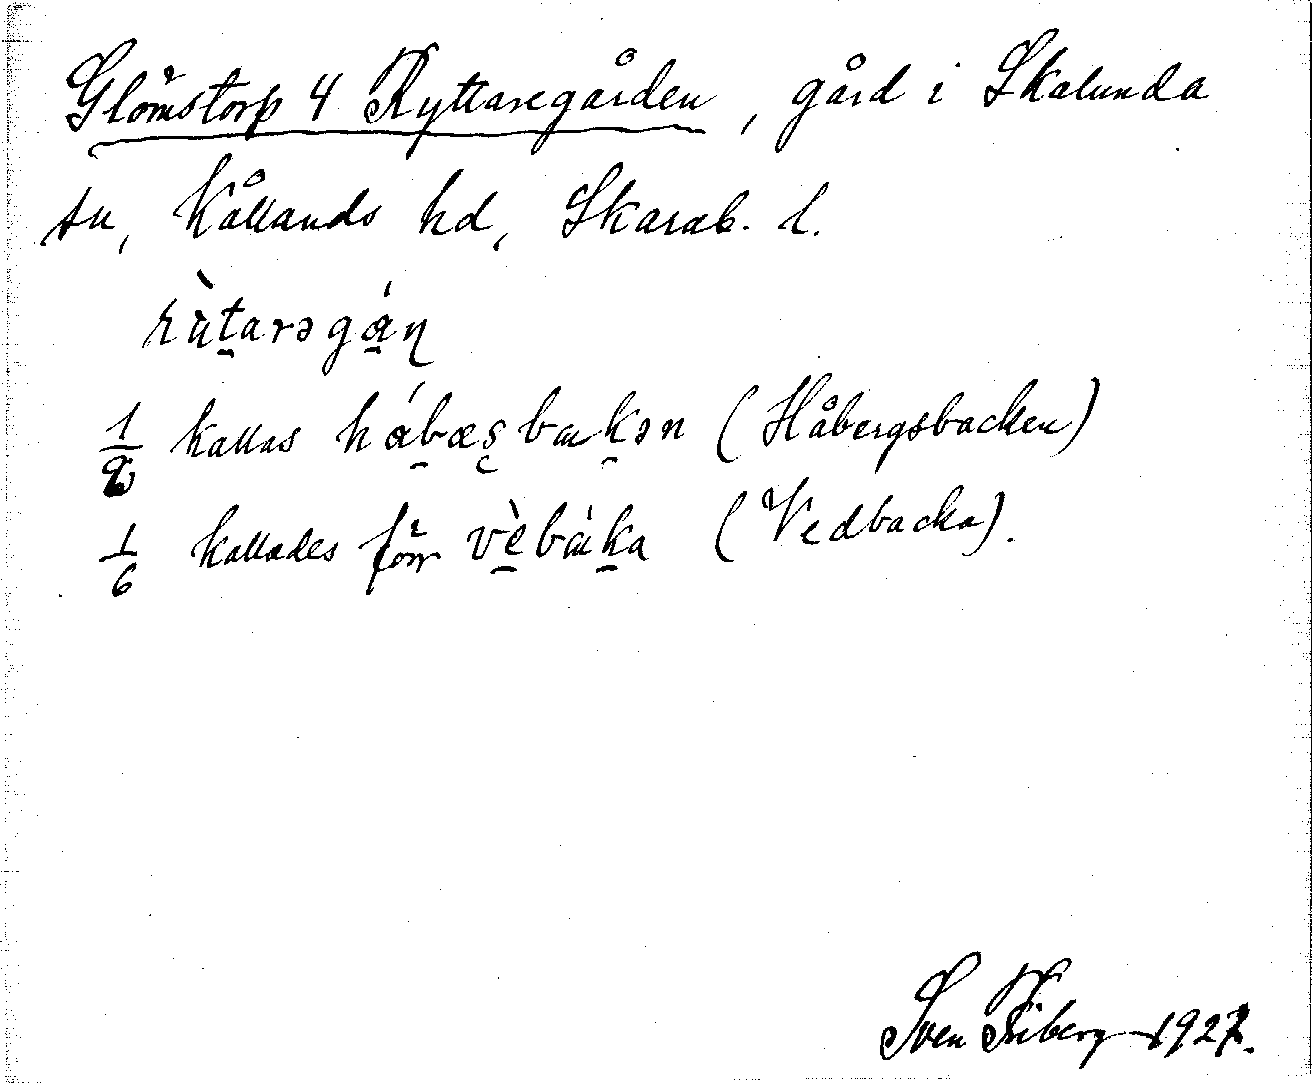 Glömstorp 4 Ryttaregården, gård i Skalunda
sn, Kållands hd, Skarab. l.
rùt̯arəgɑ́ɳ
kallas hɑ́bæʂbakən (Håbergsbacken)
1/6 kallades förr vèbàka (Vedbacka).
Sven Friberg 1927.